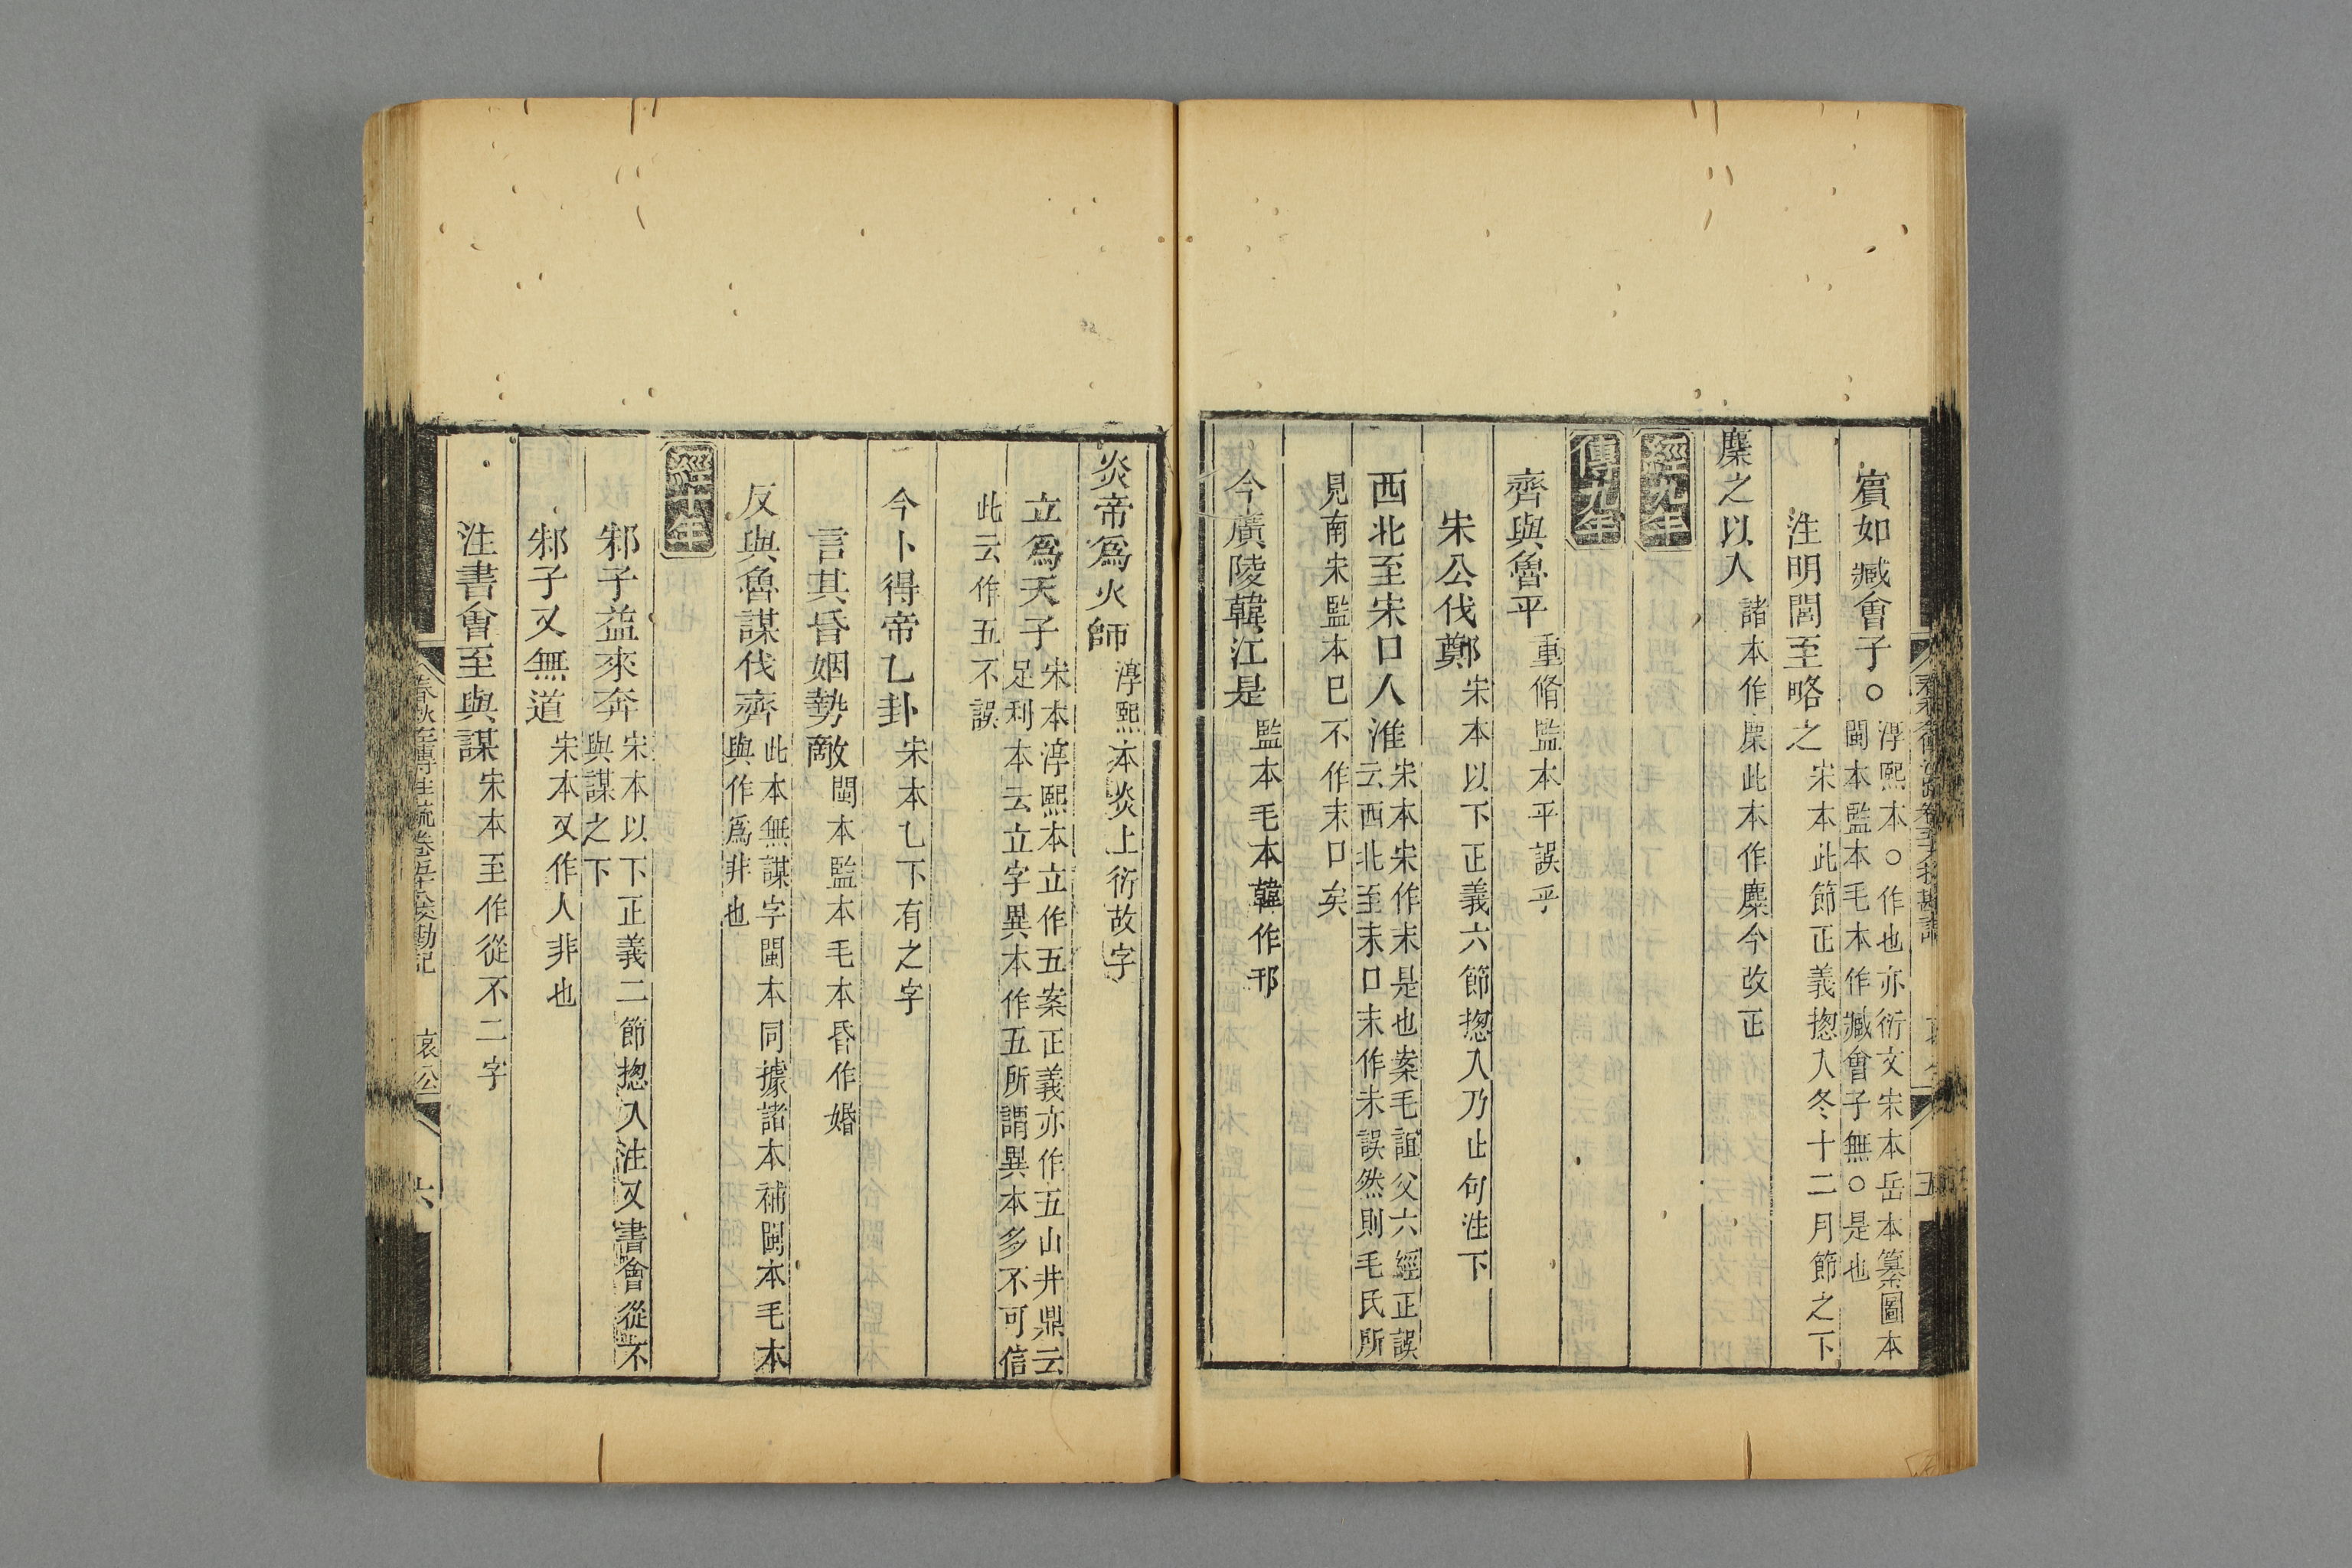 賓如臧會子○淳熙本○作也亦衍文宋本岳本纂圖本
閩本監本毛本作臧會子無○是也
注明閭至略之宋本此節正義揔入冬十二月節之下
麇之以入諸本作麇此本作麋今改正
經九年
傳九年
齊與魯平重脩監本平誤乎
宋公伐鄭宋本以下正義六節揔入乃止句注下
西北至宋口入淮宋本宋作末是也案毛誼父六經正誤
云西北至末口末作未誤然則毛氏所
見南宋監本已不作末口矣
今廣陵韓江是監本毛本韓作邗
炎帝爲火師淳熙本炎上衍故字
立爲天子宋本淳熙本立作五案正義亦作五山井鼎云
足利本云立字異本作五所謂異本多不可信
此云作五不誤
今卜得帝乙卦宋本乙下有之字
言其昏姻勢敵閩本監本毛本昏作婚
反與魯謀伐齊此本無謀字閩本同據諸本補閩本毛本
與作爲非也
經十年
邾子益來奔宋本以下正義二節揔入注又書會從不
與謀之下
邾子又無道宋本又作人非也
注書會至與謀宋本至作從不二字
春秋左傳注疏卷五十八校勘記 哀公 六